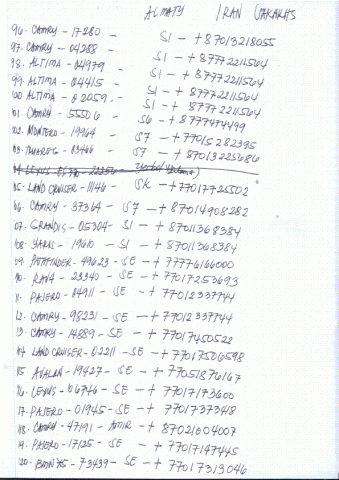 ALMATY / IRAN
96. CAMRY - 17280 - SI - +87013218055
97. CAMRY - 04288 - SI - +87772211564
98. ALTIMA - 04979 - SI - +87772211564
99. ALTIMA - 04415 - SI - +87772211564
100. ALTIMA - 02059 - SI - +87772211564
101. CAMRY - 55506 - S6 - +8777474499
102. MONTERO - 19964 - S7 - +77015282395
103. - 03466 - S7 - +87013225686
104 LEXUS
105. LAND CRUISER - 1146 - SK - +77017725502
106. CAMRY - 37364 - S7 - +87014908282
107. GRANDIS - 05304 - SI - +87011368384
108. YARIS - 19610 - SI - +87011368384
109. PATHFINDER - 49623 - SE - +77776166000
110. RAV4 - 23340 - SE - +77017253693
111. PAJERO - 04911 - SE - +77012337744
112. CAMRY - 98231 - SE - +77012337744
113. CAMRY - 14889 - SE - +77017450522
114 LAND CRUISER - 02211 - SE - +77017506598
115 AVALAN - 19427 - SE - +77051876167
116. LEXUS - 06746 - SE - +77017173600
117. PAJERO - 01945 - SE - +77017377318
118. CAMRY - 47191 - AMIR - +87021004007
119. PAJERO - 17125 - SE - +77017147445
120. BMW X5 - 73439 - SE - +77017313046